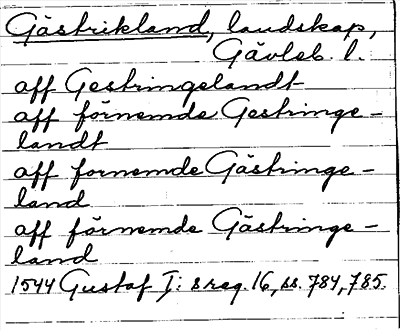 Gästrikland, landskap,
Gävleb. l.
aff Gestringelandt
aff förnemde Gestringe-
landt
aff fornemde Gästringe-
land
aff förnemde Gästringe-
land
1544 Gustaf I: s reg. 16, ss. 784, 785.